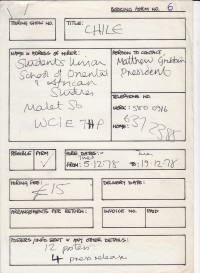 BOOKING FORM NO. 6
TOURING SHOW NO.
TITLE:
CHILE
NAME & ADDRESS OF HIRER:
Students Union
School of Oriental
& African
Studies
Malet St
WC1E 7HP
PERSON TO CONTACT,
Matthew
President
TELEPHONE NO.
WORK: 580 0916
HOME: 637 2388
POSSIBLE
FIRM
HIRE DATES:
Tue
FROM: 5.12.78 TO: 19.12.78
HIRING FEE:
£15
DELIVERY DATE:
ARRANGEMENTS FOR RETURN:
INVOICE NO.
PAID
POSTERS/INFO SENT & ANY OTHER DETAILS:
12 posters
4 press release